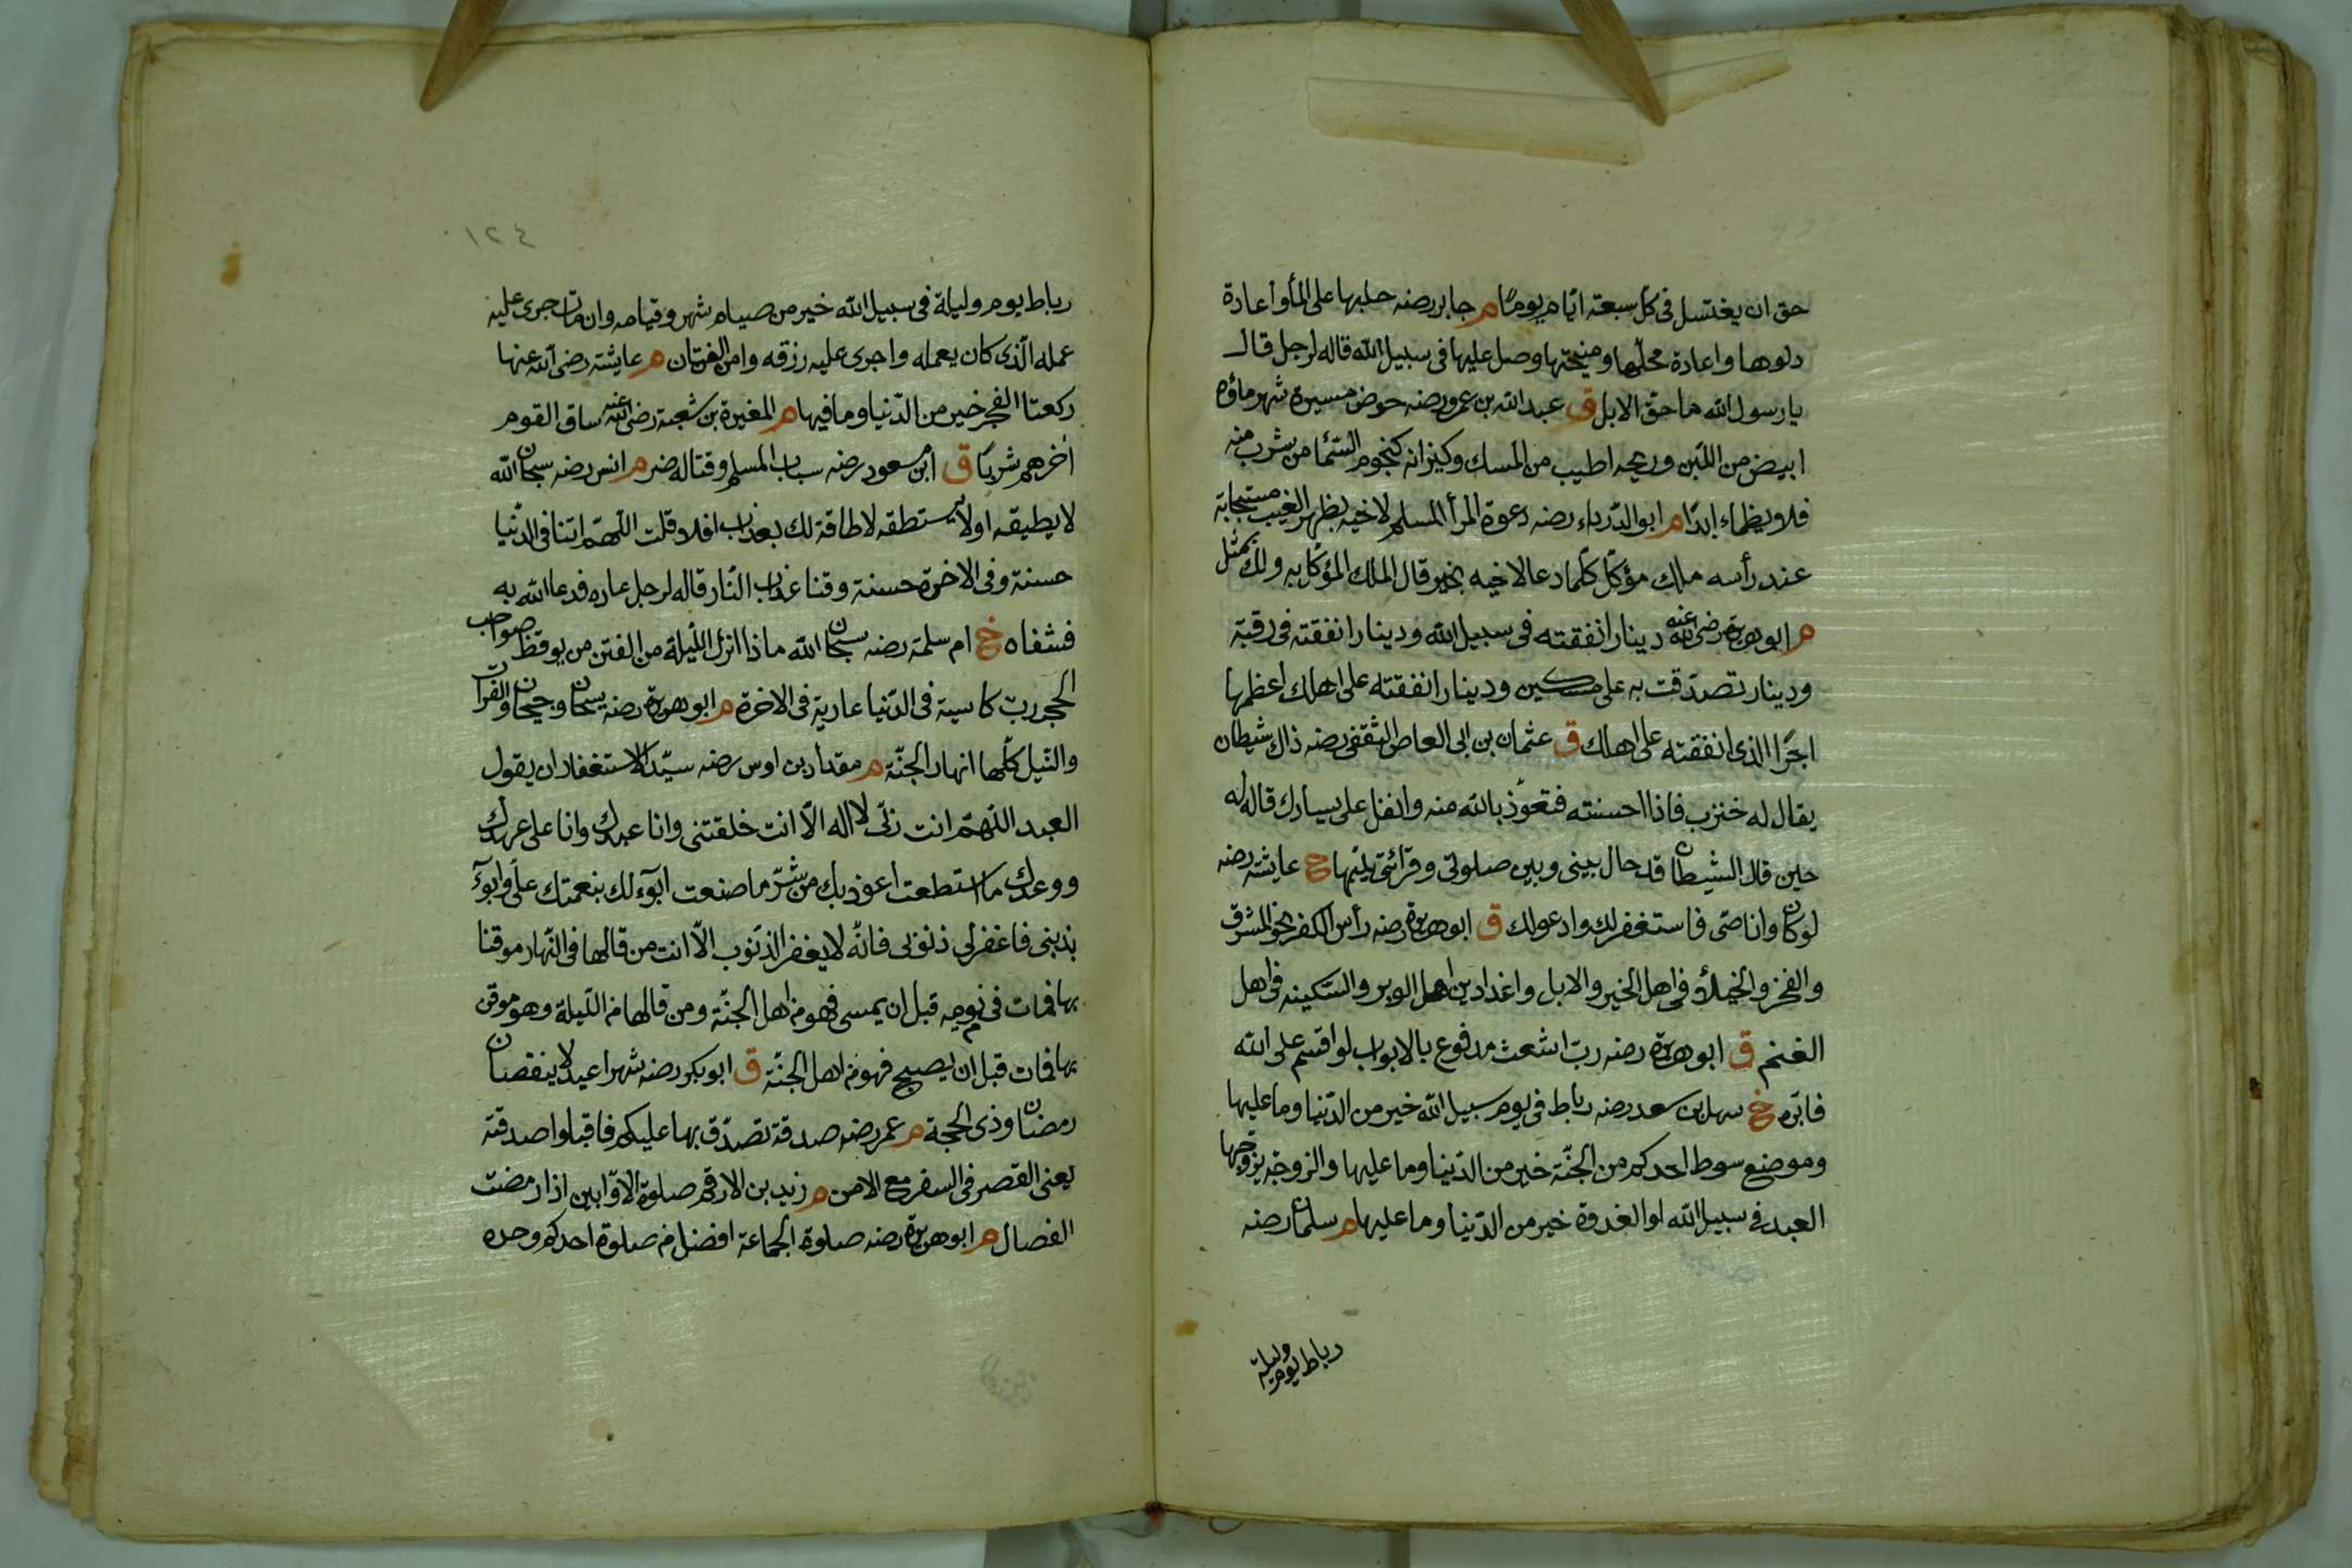 حق ان يغتسل فى كل سبعة ايام يومًا م جابر رضه حلبها على المأ واعادة
دلوها واعادة محلها ومنيحتها وصل عليها فى سبيل الله قاله لرجل قال
يا رسول الله ما حق الابل ق عبد الله بن عمرو رضه حوض مسيرة شهر ماؤه
ابيض من اللبن وريحه اطيب من المسك وكيزانه كنجوم السمأ من شرب منه
فلا ويظماء ابدًا م ابو الدرداء رضه دعوة المرأ المسلم لاخيه بظهر الغيب مستجابة
عند رأسه ملك مؤكل كلما دعا لاخيه بخير قال الملك المؤكل به ولك بمثل
م ابو هريرة رضى الله عنه دينار انفقته فى سبيل الله ودينار انفقته فى رقبة
ودينار تصدقت به على مسكين ودينار انفقته على اهلك اعظمها
اجرًا الذى انفقته على اهلك ق عثمان بن ابى العاص الثقفى رضه ذاك شيطان
يقال له خنزب فاذا احسنته فتعوذ بالله منه واتفل على يسارك قاله له
حين قال الشيطان قد حال بينى وبين صلوتى وقرائتى يلبسها خ عايشة رضه
لو كان وانا حى فاستغفر لك وادعو لك ق ابو هريرة رضه رأس الكفر نحو المشرق
والفخر والخيلأ فى اهل الخير والابل واغدادين اهل الوبر والسكينه فى اهل
الغنم ق ابو هريرة رضه رب اشعث مدفوع بالابواب لو اقسم على الله
فابره خ سهل بن سعد رضه رباط فى يوم سبيل الله خير من الدنيا وما عليها
وموضع سوط احدكم من الجنة خير من الدنيا وما عليها والزوجة يزوجها
العبد فى سبيل الله او الغدوة خير من الدنيا وما عليها م سلمان رضه
رباط يوم وليلة
١٢٤
رباط يوم وليلة فى سبيل الله خير من صيام شهر وقيامه وان مات جرى عليه
عمله الذى كان يعمله واجرى عليه رزقه وامن الفتان م عايشة رضى الله عنها
ركعتا الفجر خير من الدنيا وما فيها م المغيرة بن شعبة رضى الله عنه ساق القوم
اخرهم شربًا ق ابن مسعود رضه سباب المسلم وقتاله م انس رضه سبحان الله
لا يطيقه او لا يستطقه لا طاقة لك بعذاب افلا قلت اللهم اتنا فى الدنيا
حسنة وفى الاخرة حسنة وقنا عذاب النار قاله لرجل عاده فدعا الله به
فشفاه خ ام سلمة رضه سبحان الله ماذا انزل الليلة من الفتن من يوقظ صواحب
الحجر رب كاسية فى الدنيا عارية فى الاخرة م ابو هريرة رضه سيحان وجيحان والفرات
والنيل كلها انهار الجنة م مقداد بن اوس رضه سيد الاستغفار ان يقول
العبد اللهم انت ربى لا اله الا انت خلقتنى وانا عبدك وانا على عهدك
ووعدك ما استطعت اعوذ بك من شر ما صنعت ابوء لك بنعمتك على وابوء
بذنبى فاغفر لى ذنوبى فانه لا يغفر الذنوب الا انت من قالها فى النهار موقنا
بها فمات فى يومه قبل ان يمسى فهو من اهل الجنة ومن قالها من الليلة وهو موقن
بها فمات قبل ان يصبح فهو من اهل الجنة ق ابو بكر رضه شهرا عيد لا ينقصان
رمضان وذى الحجة م عمر رضه صدقة تصدق بها عليكم فاقبلوا صدقته
يعنى القصر فى السفر مع الامن م زيد بن الارقم صلوة الاوابين اذا رمضت
الفصال م ابو هريرة رضه صلوة الجماعة افضل من صلوة احدكم وحده